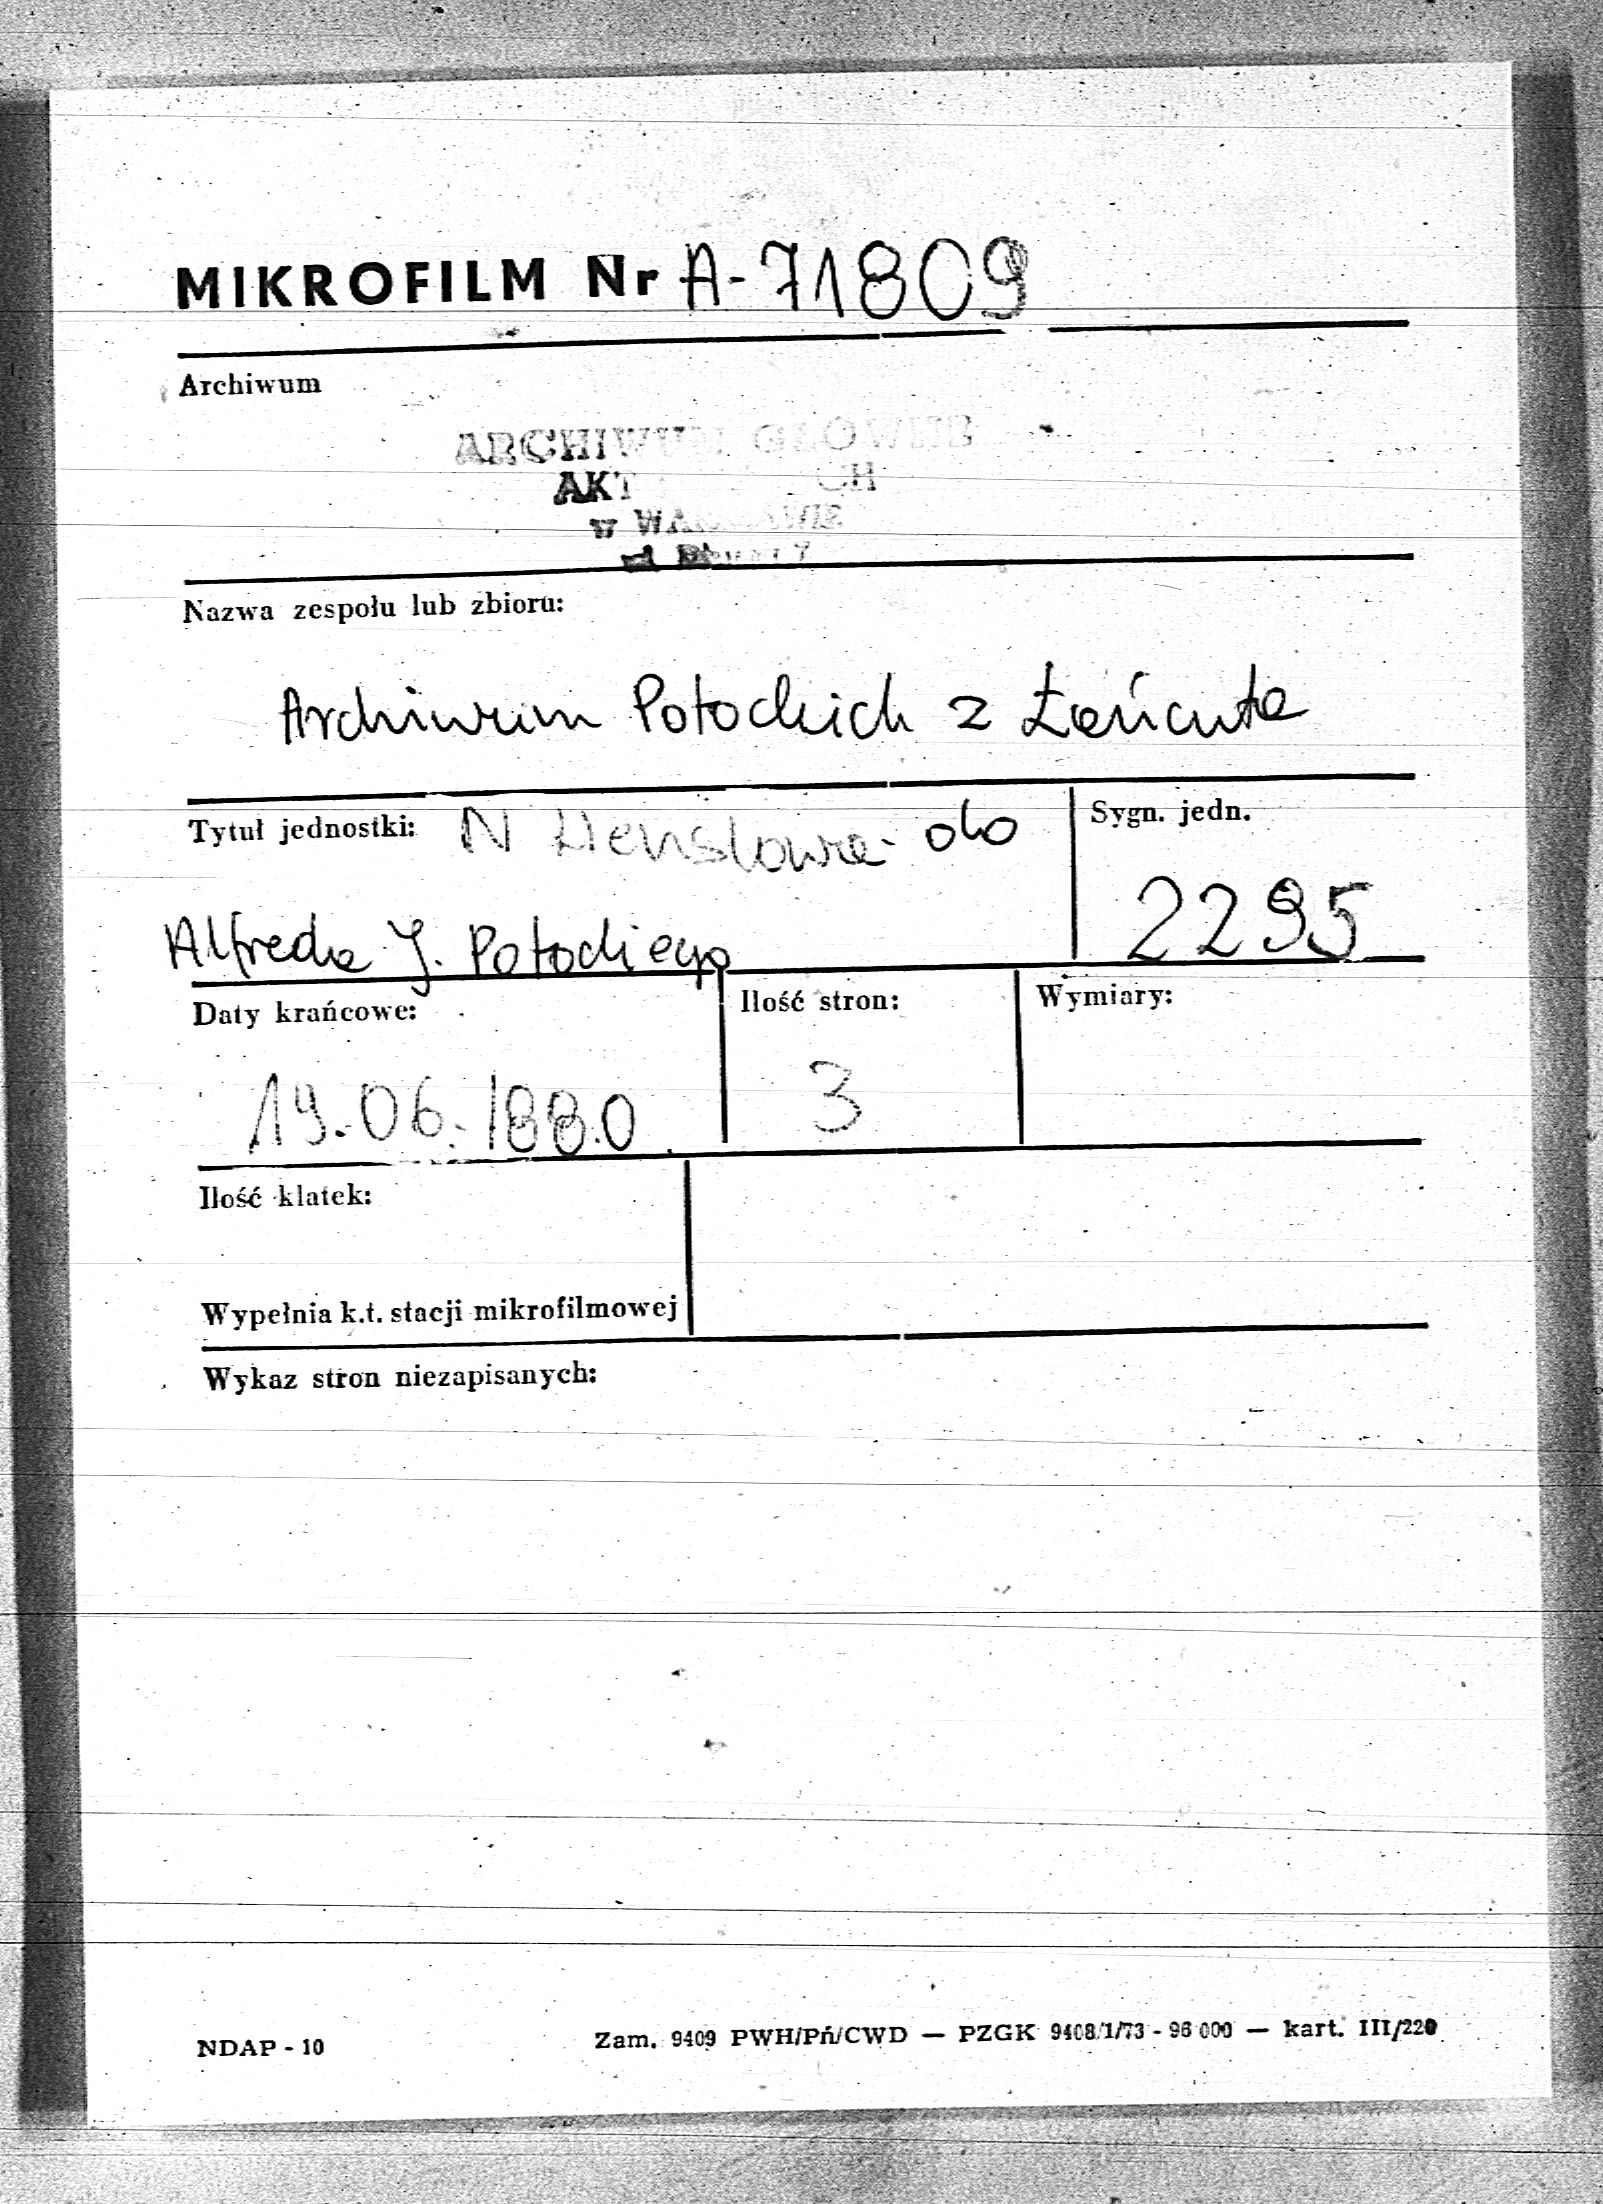 MIKROFILM Nr A-71809
Archiwum
ARCHIWUM GŁÓWNE
AKT
w WARSZAWIE
Nazwa zespołu lub zbioru:
Archiwum Potockich z Łańcuta
Tytuł jednostki: N do
Sygn. jedn.
Alfreda J. Potockiego
2295
Daty krańcowe:
Ilość stron:
Wymiary:
19.06.1880
3
Ilość klatek:
Wypełnia k.t. stacji mikrofilmowej
Wykaz stron niezapisanych:
NDAP - 10
Zam. 9409 PWH/Pń/CWD — PZGK 9408/1/73 - 96 000 — kart. III/220